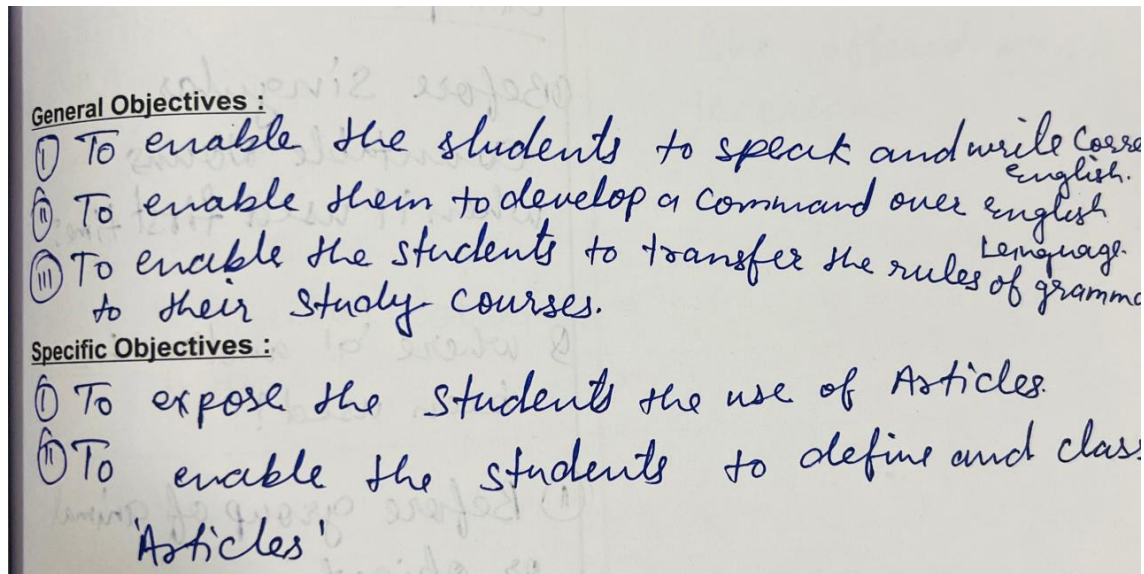 General Objectives :
(I) To enable the students to speak and write Corre
English.
(II) To enable them to develop a Command over English
Language.
(III) To enable the students to transfer the rules of gramma
to their Study Courses.
Specific Objectives :
(I) To expose the Students the use of Articles.
(II) To enable the students to define and class
'Articles'